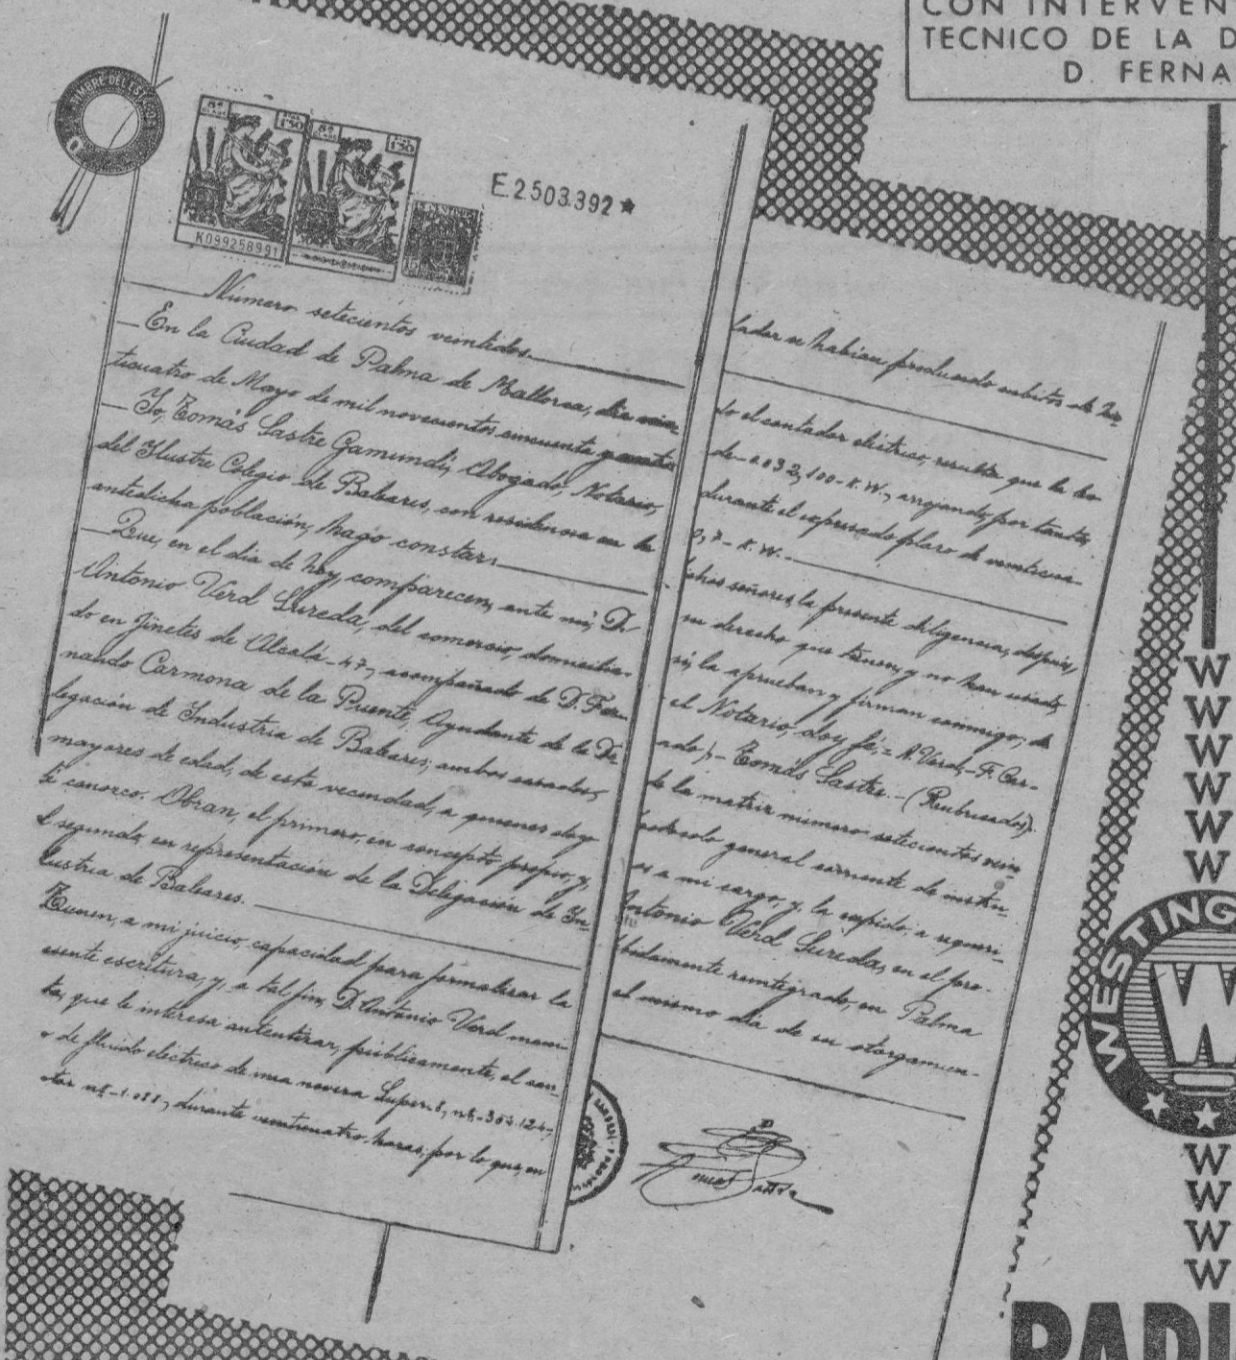 CON INTERVEN
TECNICO DE LA D
D. FERNA
TIMBRE DEL ESTADO
E.2503.392 ★
K099258991
Número setecientos veintidos.
En la Ciudad de Palma de Mallorca, dia vein-
ticuatro de Mayo de mil novecientos cincuenta y cuatro
Yo, Tomás Sastre Gamundi, Abogado, Notario,
del Ilustre Colegio de Baleares, con residencia en la
antedicha población, hago constar:
Que, en el dia de hoy, comparecen, ante mi, D.
Antonio Verd Sureda, del comercio, domicilia-
do en Jinetes de Alcalá-47-, acompañado de D. Fer-
nando Carmona de la Puente, Ayudante de la De
legación de Industria de Baleares; ambos casados,
mayores de edad, de esta vecindad, a quienes doy
fé conozco. Obran, el primero, en concepto propio, y,
l segundo, en representación de la Delegación de In-
dustria de Baleares.
Tienen, a mi juicio, capacidad para formalizar la
esente escritura, y, a tal fin, D. Antonio Verd mani-
ta, que le interesa autentizar, públicamente, el con-
o de fluido eléctrico de una nevera Super-8, nº-
durante veinticuatro horas, por lo que, en
tador se habian producido cubitos de
do el contador eléctrico, resulta que la ha
de K.W., arrojando, por tanto,
durante el expresado plazo de veinticua-
0,7- K.W.
dichos señores, la presente diligencia, después,
su derecho que tienen, y no han usado,
si, la aprueban y firman conmigo; de
el Notario, doy fé.= A. Verd.-F. Car-
ado).- Tomás Sastre.-(Rubricado).
de la matriz número setecientos vein
protocolo general corriente de instru-
os a mi cargo, y, la expido, a requeri-
Antonio Verd Sureda, en el pre-
bidamente reintegrado, en Palma
el mismo dia de su otorgamien-
W
W
W
W
W
W
WESTING
W
W
W
W
W
RADI